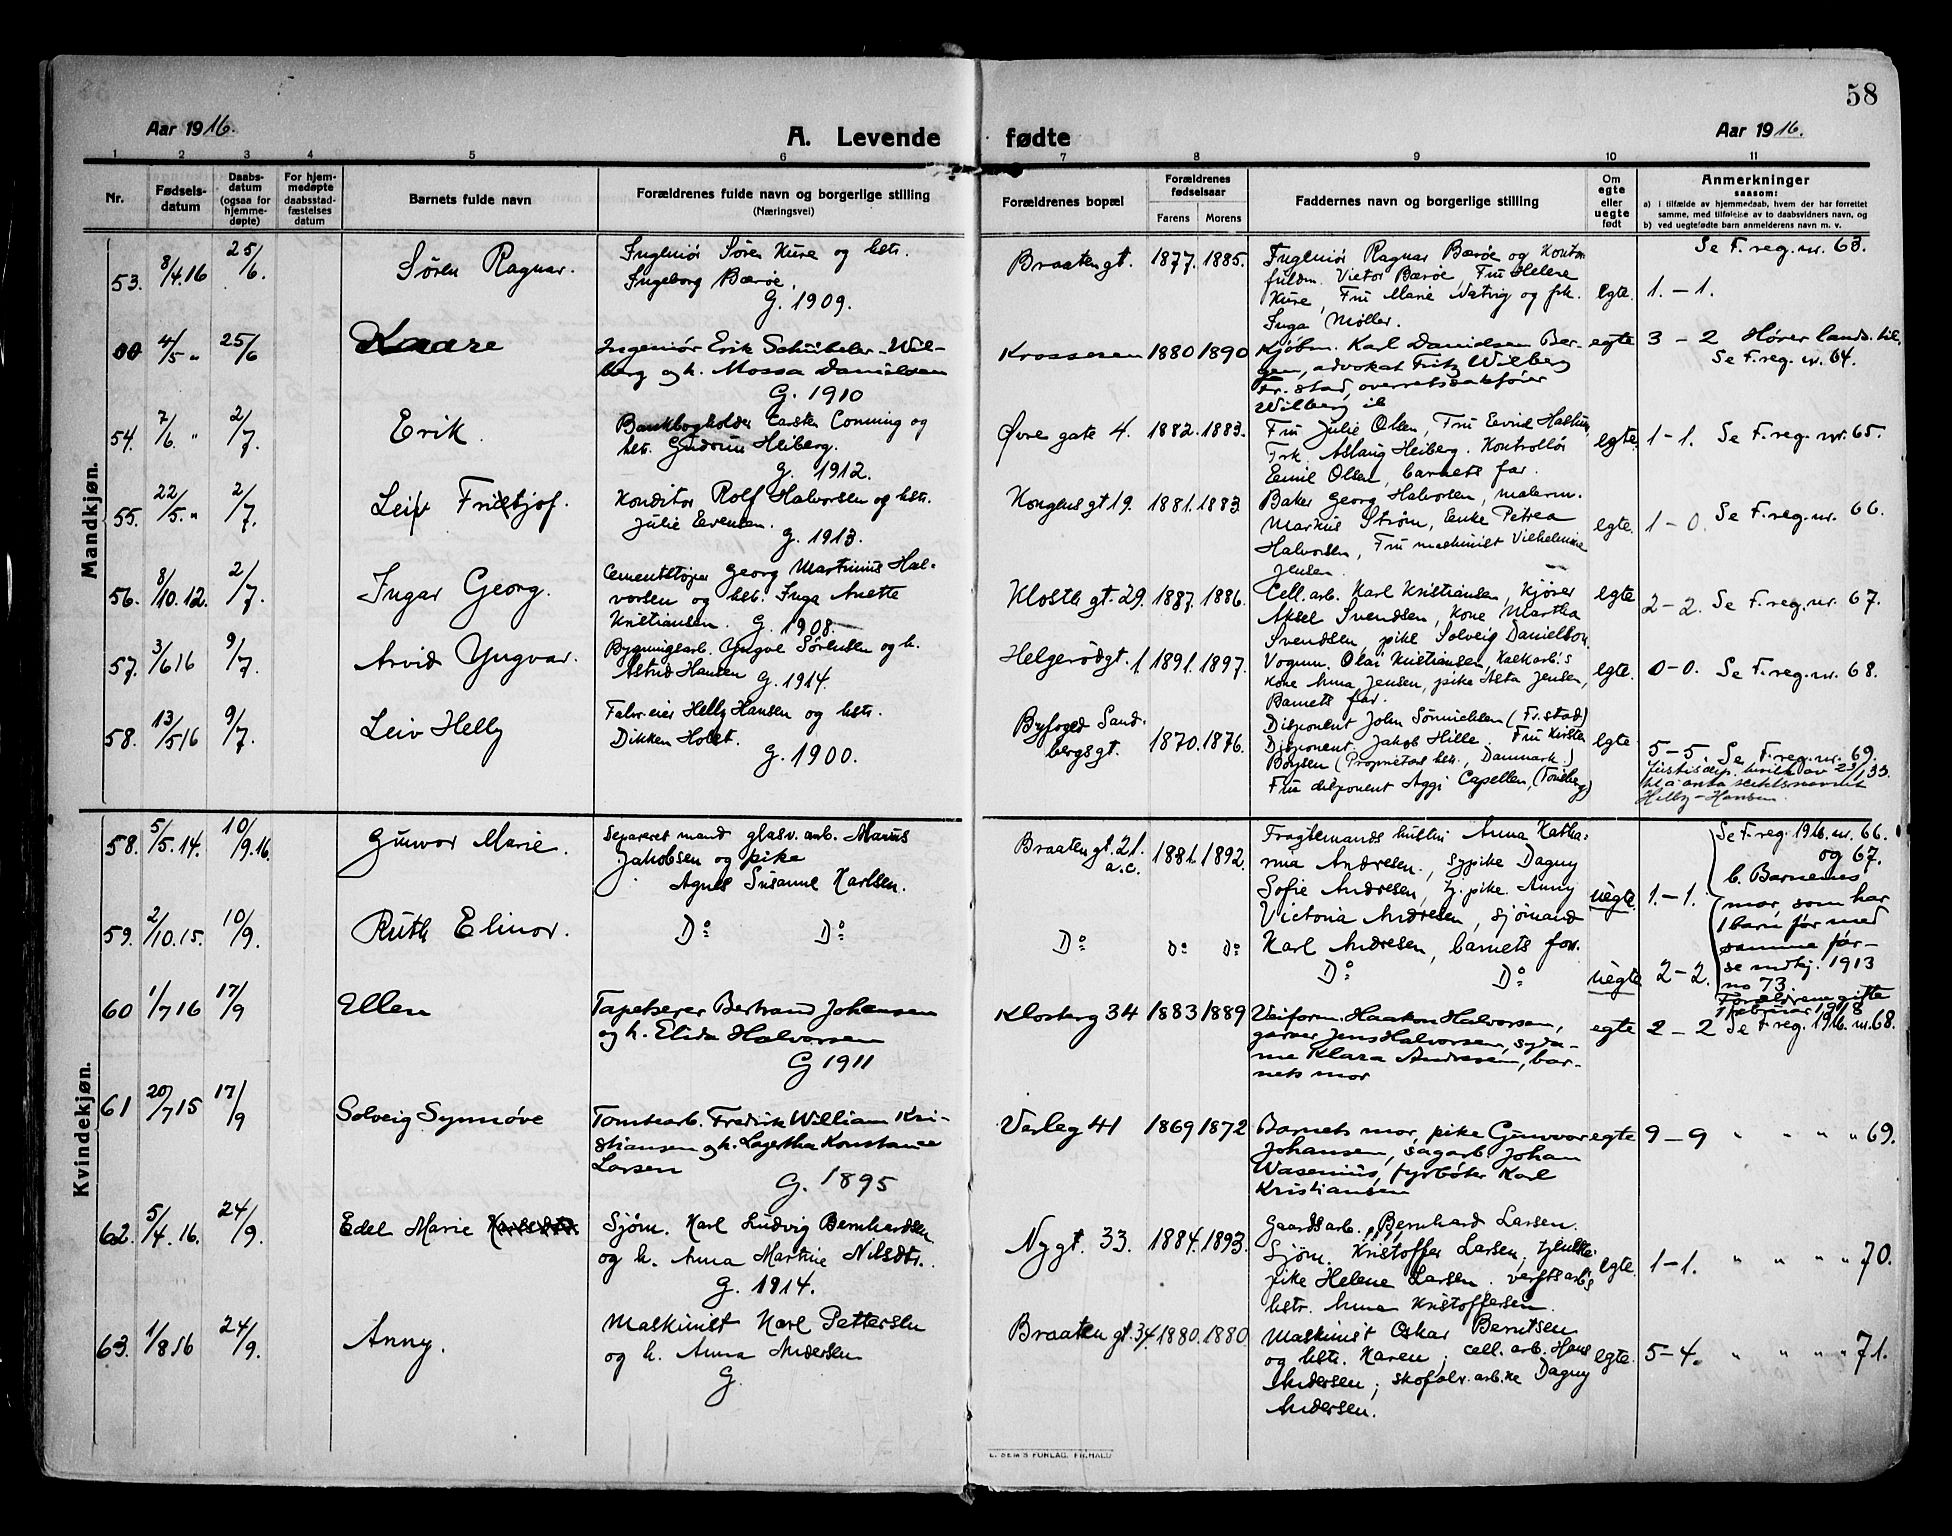 58
Aar 1916.
A. Levende fødte
Aar 1916.
1 2 3 4 5 6 7 8 9 10 11
Nr.
Fødsels-
datum
Daabs-
datum
(ogsaa for
hjemme-
døpte)
For hjem-
medøpte
daabsstad-
fæstelses
datum
Barnets fulde navn
Forældrenes fulde navn og borgerlige stilling
(Næringsvei)
Forældrenes bopæl
Forældrenes
fødselsaar
Farens Morens
Faddernes navn og borgerlige stilling
Om
egte
eller
uegte
født
Anmerkninger
saasom:
a) i tilfælde av hjemmedaab, hvem der har forrettet
samme, med tilføielse av to daabsvidners navn, og
b) ved uegtefødte barn anmelderens navn m. v.
Mandkjøn.
53. 8/4.16 25/6. Søren Ragnar.
Ingeniør Søren Kure og hstr.
Ingeborg Bærøe,
G. 1909.
Braaten gt. 1877. 1885.
Ingeniør Ragnar Bærøe og Kontor
fuldm. Victor Bærøe. Fru Helene
Kure, Fru Marie Natvig og frk.
Inga Møller.
egte. 1. – 1. Se F. reg. nr. 63.
00 4/5 " 25/6 Kaare
Ingeniør Erik Schübeler Wil-
berg og h. Mossa Danielsen
G. 1910
Krosseren 1880 1890
Kjøbm. Karl Danielsen Ber-
gen, advokat Fritz Wilberg
Fr.stad, overretssakfører
Wilberg ib
egte 3 – 2 Hører lands. til.
Se F. reg. nr. 64.
54. 7/6. " 2/7. Erik.
Bankbogholder Carsten Conning og
hst. Gudrun Heiberg.
G. 1912.
Øvre gate 4. 1882. 1883.
Fru Julie Olsen, Fru Eevid
Frk. Aslaug Heiberg. Kontrollør
Emil Olsen, barnets far.
egte. 1 – 1. Se F. reg. nr. 65.
55. 22/5. " 2/7. Leif Fritjof.
Konditor Rolf Halvorsen og hstr.
Julie Evensen.
G. 1913.
Kongens gt 19. 1881. 1883
Baker Georg Halvorsen, malerm.
Markus Strøm, Enke Petrea
Halvorsen, Fru maskinist Vilhelmine
Jensen.
egte. 1 – 0. Se F. reg. nr. 66.
56. 8/10.12. 2/7. Ingar Georg.
Cementstøper Georg Martinius Hal-
vorsen og hst. Inga Anette
Kristiansen. G. 1908.
Kloste gt. 29. 1887. 1886.
Cell. arb. Karl Kristiansen, Kjører
Aksel Svendsen, kone Martha
Svendsen, pike Solveig Danielson
egte 2 – 2. Se F. reg. nr. 67.
57. 3/6 16 9/7. Arvid Yngvar.
Bygningsarb. Yngve Sørensen og h.
Astrid Hansen G. 1914.
Helgerødgt. 1. 1891. 1897.
Vognm. Olai Kristiansen, Kalkarb.s
kone Anna Jensen, pike Asta Jensen,
Barnets far.
egte. 0–0. Se F. reg. nr. 68.
58. 13/5 16 9/7. Leiv Helly
Fabr. eier Helly Hansen og hstr.
Dikken Holst.
G. 1900.
Byfoged Sand-
bergsgt. 1870. 1876.
Disponent John Sømichsen (Fr.stad)
Disponent Jakob Hille. Fru Kirsten
Boysen (Proprietærs hst., Danmark.)
Fru disponent Aggi Capellen, (Tønsberg)
egte 5–5. Se F. reg. nr. 69.
Justisdep. bevilg av 23/1 33.
til å anta slektsnavnet
Helly-Hansen.
Kvindekjøn.
58. 5/5. 14. 10/9.16. Gunvor Marie.
Separeret mand glasv. arb. Marius
Jakobsen og pike
Agnes Susanne Karlsen.
Braaten gt. 21.
a.c. 1881. 1892.
Fragtemands hustru Anna Katha-
rina Andresen, sypike Dagny
Sofie Andresen, tj. pike. Anny
Victoria Andresen, sjømand
Karl Andresen, barnets far.
uegte. 1.–1.
Se F. reg. 1916. nr. 66.
og 67.
b. Barnenes
mor, som har
1 barn før med
samme far –
se mdkj. 1913
no 73.
Forældrene gifte
Februar 1918
59. 2/10.15. 10/9. Ruth Elinor.
Do Do Do Do Do
Do Do
uegte 2–2.
60 1/7 16 17/9 Ellen
Tapetserer Bertrand Johansen
og h. Elida Halvorsen
G 1911
Klosterg 34 1883 1889
Veiform. Haakon Halvorsen,
garver Jens Halvorsen, syda-
me Klara Andresen, bar-
nets mor
egte 2 – 2 Se F. reg. 1916. nr. 68.
61 20/7 15 17/9 Solveig Synnøve
Tomtearb. Fredrik William Kri-
stiansen og h. Lagertha Konstance
Larsen
G. 1895
Varleg 41 1869 1872
Barnets mor, pike Gunvor
Johansen, sagarb. Johan
Wasenius, fyrbøter Karl
Kristiansen
egte 9 – 9 " " " " 69.
62. 5/4. 16. 24/9. Edel Marie
Sjøm. Karl Ludvig Bernhardsen
og h. Anna Martine Nilsdtr.
G. 1914.
Nygt. 33. 1884. 1893.
Gaardsarb. Bernhard Larsen.
Sjøm. Kristoffer Larsen, tjeneste-
pike Helene Larsen. verftsarb.s
hstr. Anna Kristoffersen.
egte. 1–1. " " " " 70.
63. 1/8 16 24/9. Anny.
Maskinist Karl Pettersen
og h. Anna Andersen
G.
Braaten gt. 34. 1880. 1880
Maskinist Oskar Berntsen
og hstr. Karen, cell. arb. Hans
Andersen; skofabr. arb.ke Dagny
Andersen.
egte. 5–4. " " " " 71.
E. SEM'S FORLAG, FR.HALD